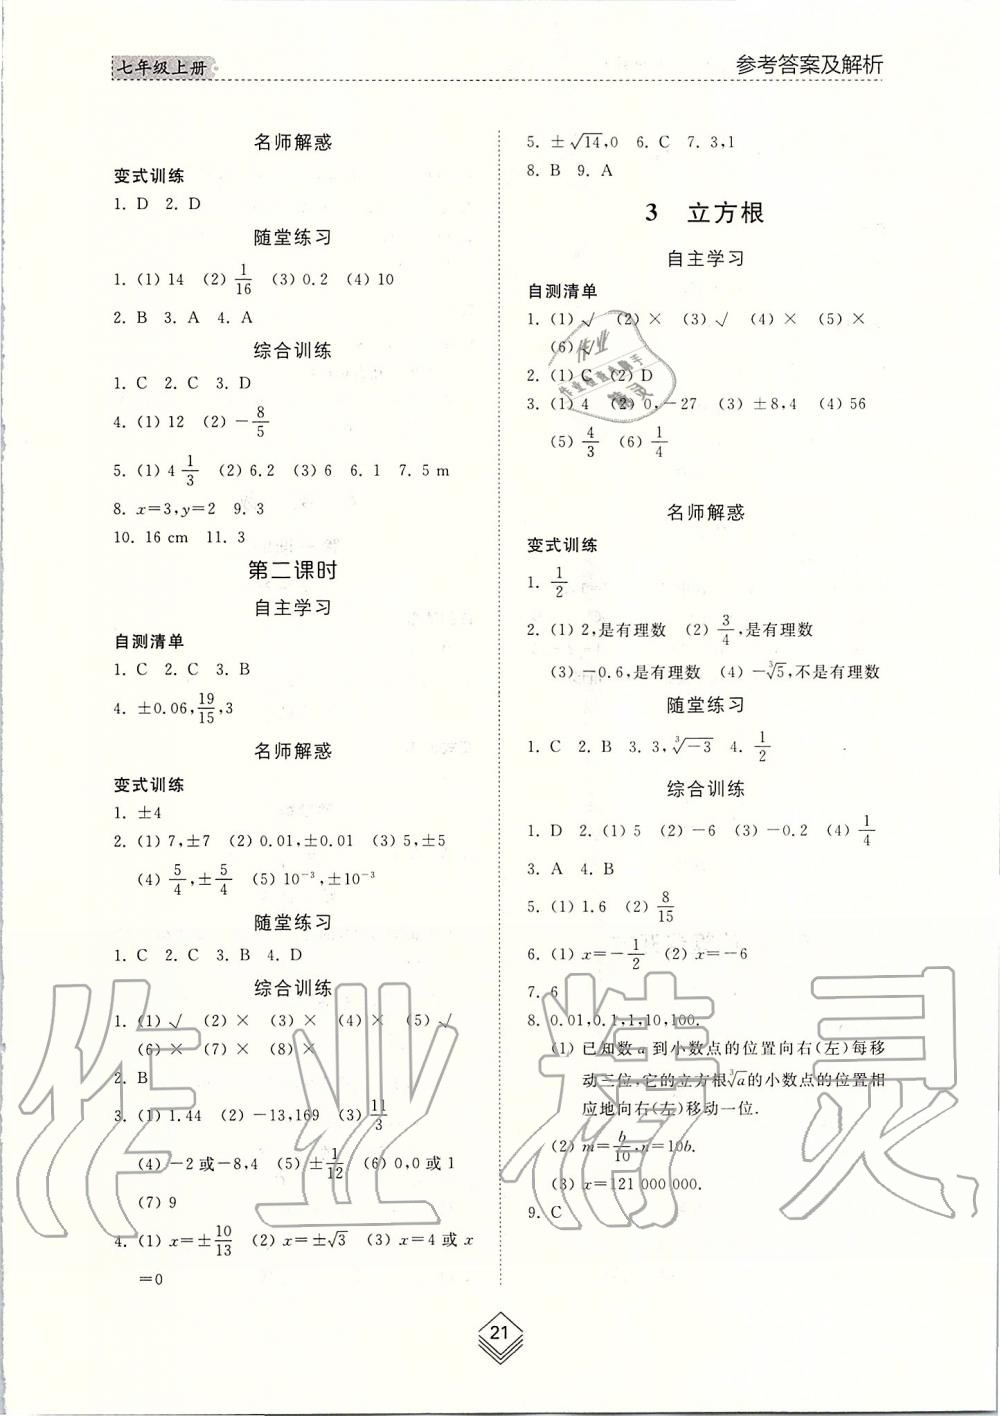 七年级上册
参考答案及解析
名师解惑
变式训练
1. D 2. D
随堂练习
1. (1) 14 (2) 1/16 (3) 0.2 (4) 10
2. B 3. A 4. A
综合训练
1. C 2. C 3. D
4. (1) 12 (2) −8/5
5. (1) 4 1/3 (2) 6.2 (3) 6 6. 1 7. 5 m
8. x=3,y=2 9. 3
10. 16 cm 11. 3
第二课时
自主学习
自测清单
1. C 2. C 3. B
4. ±0.06,19/15,3
名师解惑
变式训练
1. ±4
2. (1) 7,±7 (2) 0.01,±0.01 (3) 5,±5
(4) 5/4,±5/4 (5) 10⁻³,±10⁻³
随堂练习
1. C 2. C 3. B 4. D
综合训练
1. (1) √ (2) × (3) × (4) × (5) √
(6) × (7) × (8) ×
2. B
3. (1) 1.44 (2) −13,169 (3) 11/3
(4) −2 或 −8,4 (5) ±1/12 (6) 0,0 或 1
(7) 9
4. (1) x=±10/13 (2) x=±√3 (3) x=4 或 x
=0
5. ±√14,0 6. C 7. 3,1
8. B 9. A
3 立方根
自主学习
自测清单
1. (1) √ (2) × (3) √ (4) × (5) ×
(6) √
2. (1) C (2) D
3. (1) 4 (2) 0,−27 (3) ±8,4 (4) 56
(5) 4/3 (6) 1/4
名师解惑
变式训练
1. 1/2
2. (1) 2,是有理数 (2) 3/4,是有理数
(3) −0.6,是有理数 (4) −∛5,不是有理数
随堂练习
1. C 2. B 3. 3,∛−3 4. 1/2
综合训练
1. D 2. (1) 5 (2) −6 (3) −0.2 (4) 1/4
3. A 4. B
5. (1) 1.6 (2) 8/15
6. (1) x=−1/2 (2) x=−6
7. 6
8. 0.01,0.1,1,10,100.
(1) 已知数 a 到小数点的位置向右(左)每移
动三位,它的立方根∛a的小数点的位置相
应地向右(左)移动一位.
(2) m=b/10,n=10b.
(3) x=121 000 000.
9. C
21
作业精灵